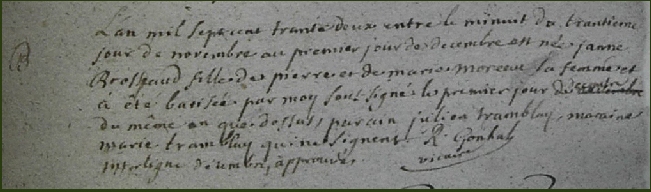 L'an mil sept cent trante deux entre le minuit du trantieme
jour de novembre au premier jour de decembre est née janne
fille de pierre et de marie moreau sa femme et
a été batisée par moy sousigné le premier jour de decembre
du même an que dessus, parain julien tramblay, maraine
marie tramblay qui ne signent R.
interligne deumbre, approuvés. vicaire
B